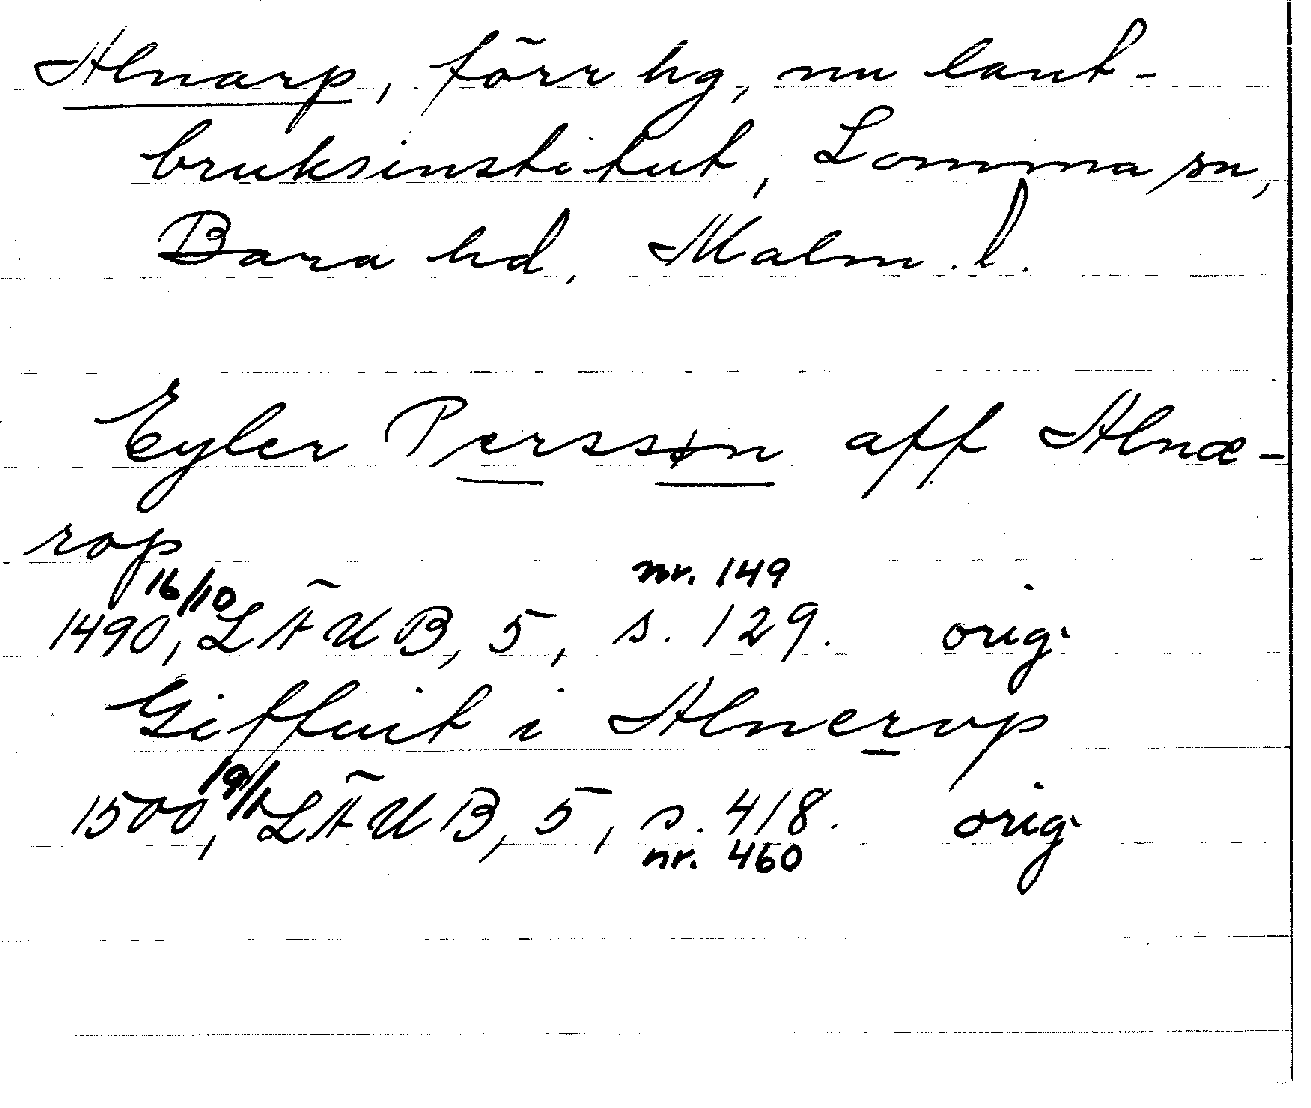 Alnarp, förr hg, nu lant-
bruksinstitut, Lomma sn,
Bara hd, Malm. l.
Eyler Perssøn aff Alnæ-
rop
16/10 nr. 149
1490, LÄUB, 5, s. 129. orig.
Giffuit i Alnerop
19/1
1500, LÄUB, 5, s. 418. orig.
nr. 460